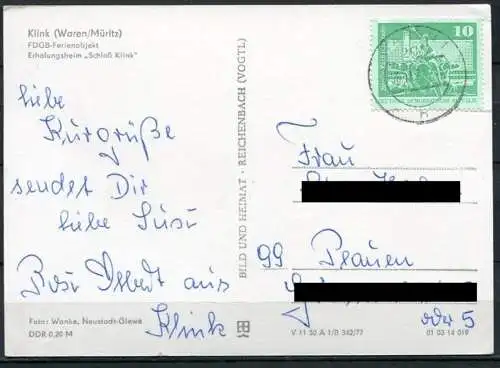 Klink (Waren/Müritz)
FDGB-Ferienobjekt
Erholungsheim „Schloß Klink"
liebe
Kurgrüße
sendet Dir
liebe Susi
aus
Klink
Foto: Wanke, Neustadt-Glewe
DDR 0,20 M
BILD UND HEIMAT · REICHENBACH (VOGTL)
10
Frau
99 Plauen
oder 5
V 11 50 A 1/B 342/77
01 03 14 019